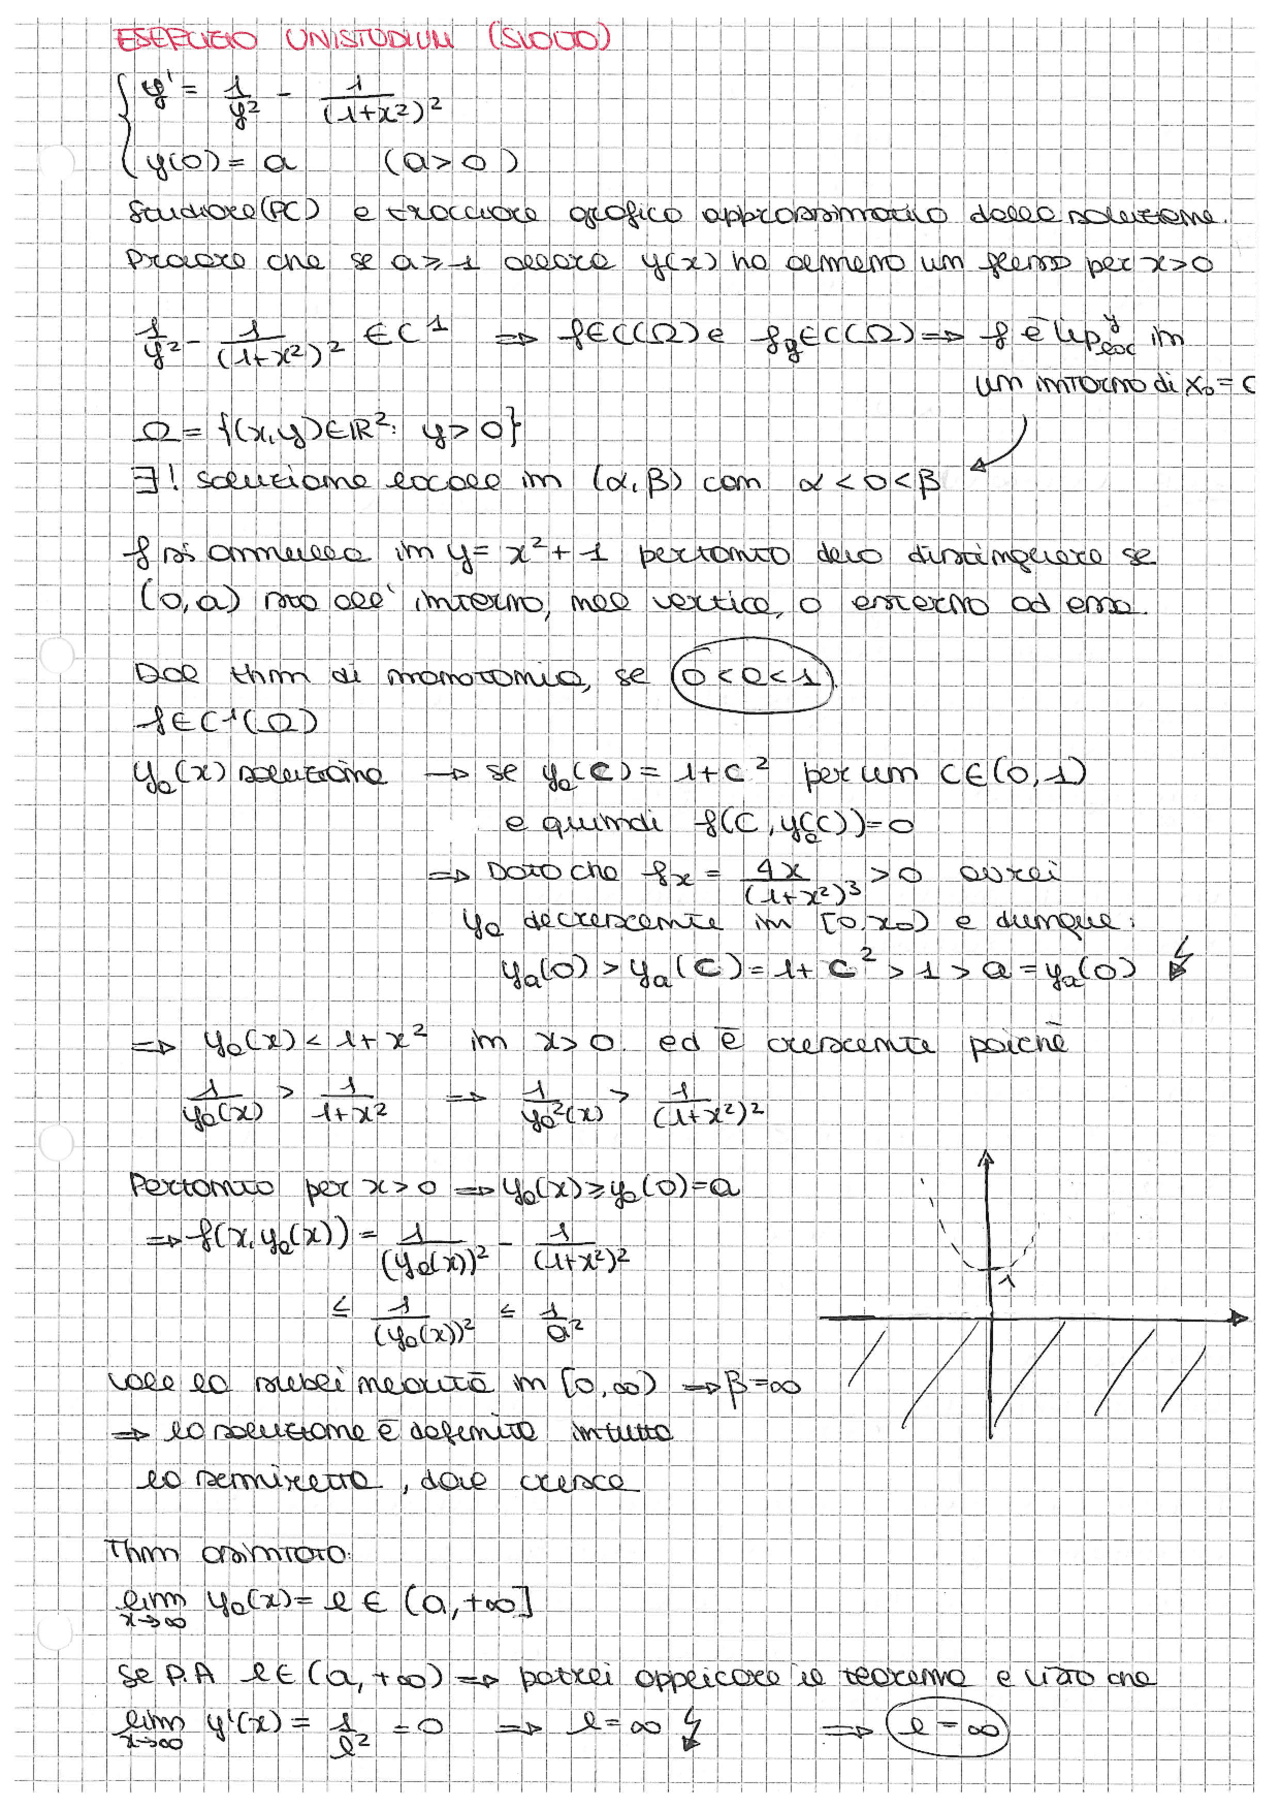 ESERCIZIO UNISTUDIUM (SVOLTO)
{ y' = 1/y² - 1/(1+x²)²
y(0) = a (a>0)
Studiare (PC) e tracciare grafico approssimativo della soluzione.
Provare che se a≥1 allora y(x) ha almeno un flesso per x>0
1/y² - 1/(1+x²)² ∈ C¹ ⇒ f∈C(Ω) e f_y∈C(Ω) ⇒ f è Lip^y_loc in
un intorno di x₀=0
Ω = {(x,y)∈ℝ²: y>0}
∃! soluzione locale in (α,β) con α<0<β
f si annulla in y = x²+1 pertanto devo distinguere se
(0,a) sta all'interno, nel vertice, o esterno ad essa.
Dal thm di monotonia, se 0<a<1
f∈C¹(Ω)
y_a(x) soluzione → se y_a(c) = 1+c² per un c∈(0,1)
e quindi f(c,y_a(c))=0
⇒ Dato che f_x = 4x/(1+x²)³ >0 avrei
y_a decrescente in [0,x₀) e dunque:
y_a(0) > y_a(c) = 1+c² > 1 > a = y_a(0) ↯
⇒ y_a(x) < 1+x² in x>0. ed è crescente poichè
1/y_a(x) > 1/1+x² ⇒ 1/y_a²(x) > 1/(1+x²)²
Pertanto per x>0 ⇒ y_a(x) ≥ y_a(0)=a
⇒ f(x,y_a(x)) = 1/(y_a(x))² - 1/(1+x²)²
1
≤ 1/(y_a(x))² ≤ 1/a²
vale la sublinearità in [0,∞) ⇒ β=∞
⇒ la soluzione è definita in tutta
la semiretta, dove cresce
Thm asintoto:
lim x→∞ y_a(x) = l ∈ (a,+∞]
Se P.A l∈(a,+∞) ⇒ potrei applicare il teorema e visto che
lim x→∞ y'(x) = 1/l² = 0 ⇒ l=∞ ↯ ⇒ l=∞